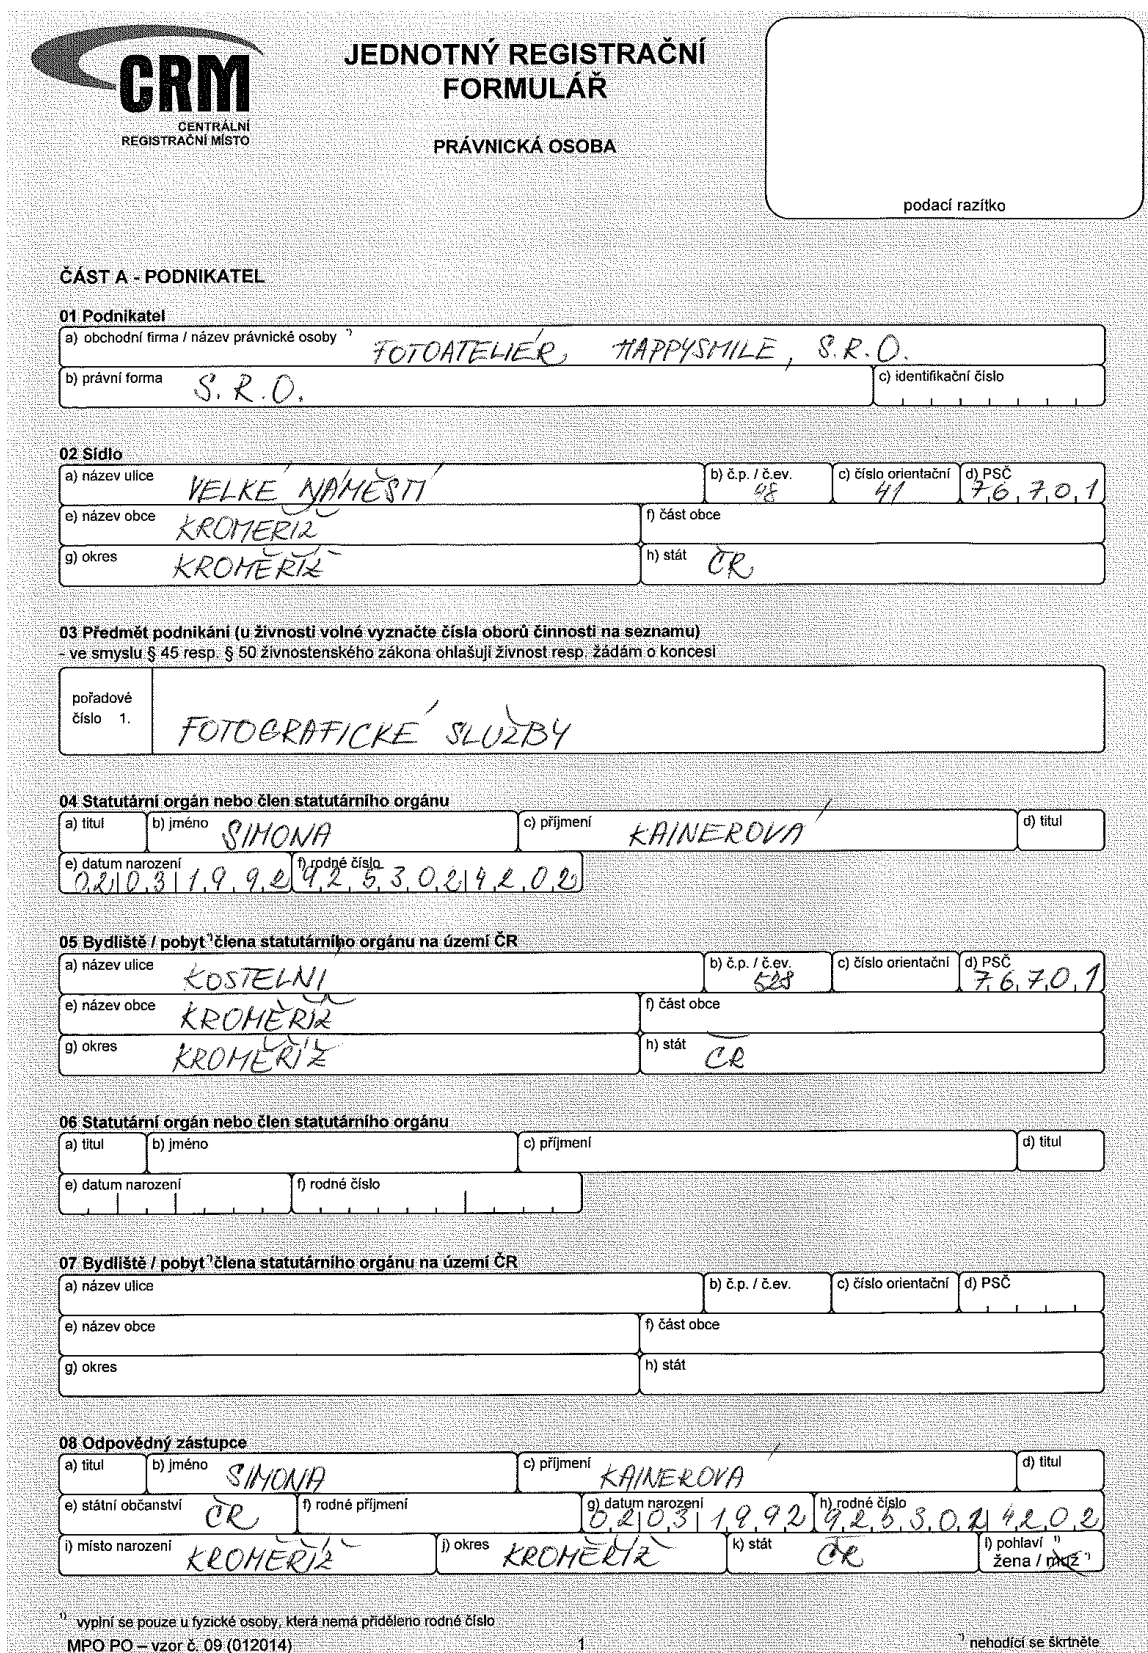 CRM
CENTRÁLNÍ
REGISTRAČNÍ MÍSTO
JEDNOTNÝ REGISTRAČNÍ
FORMULÁŘ
PRÁVNICKÁ OSOBA
podací razítko
ČÁST A - PODNIKATEL
01 Podnikatel
a) obchodní firma / název právnické osoby *) FOTOATELIÉR HAPPYSMILE, S.R.O.
b) právní forma S.R.O. c) identifikační číslo
02 Sídlo
a) název ulice VELKÉ NÁMĚSTÍ b) č.p. / č.ev. 48 c) číslo orientační 41 d) PSČ 76701
e) název obce KROMĚŘÍŽ f) část obce
g) okres KROMĚŘÍŽ h) stát ČR
03 Předmět podnikání (u živnosti volné vyznačte čísla oborů činnosti na seznamu)
- ve smyslu § 45 resp. § 50 živnostenského zákona ohlašuji živnost resp. žádám o koncesi
pořadové
číslo 1. FOTOGRAFICKÉ SLUŽBY
04 Statutární orgán nebo člen statutárního orgánu
a) titul b) jméno SIMONA c) příjmení KAINEROVÁ d) titul
e) datum narození 02031992 f) rodné číslo 9253024202
05 Bydliště / pobyt *) člena statutárního orgánu na území ČR
a) název ulice KOSTELNÍ b) č.p. / č.ev. 528 c) číslo orientační d) PSČ 76701
e) název obce KROMĚŘÍŽ f) část obce
g) okres KROMĚŘÍŽ h) stát ČR
06 Statutární orgán nebo člen statutárního orgánu
a) titul b) jméno c) příjmení d) titul
e) datum narození f) rodné číslo
07 Bydliště / pobyt *) člena statutárního orgánu na území ČR
a) název ulice b) č.p. / č.ev. c) číslo orientační d) PSČ
e) název obce f) část obce
g) okres h) stát
08 Odpovědný zástupce
a) titul b) jméno SIMONA c) příjmení KAINEROVÁ d) titul
e) státní občanství ČR f) rodné příjmení g) datum narození 02031992 h) rodné číslo 9253024202
i) místo narození KROMĚŘÍŽ j) okres KROMĚŘÍŽ k) stát ČR l) pohlaví 1)
žena / muž *)
1) vyplní se pouze u fyzické osoby, která nemá přiděleno rodné číslo
MPO PO – vzor č. 09 (012014) 1 *) nehodící se škrtněte